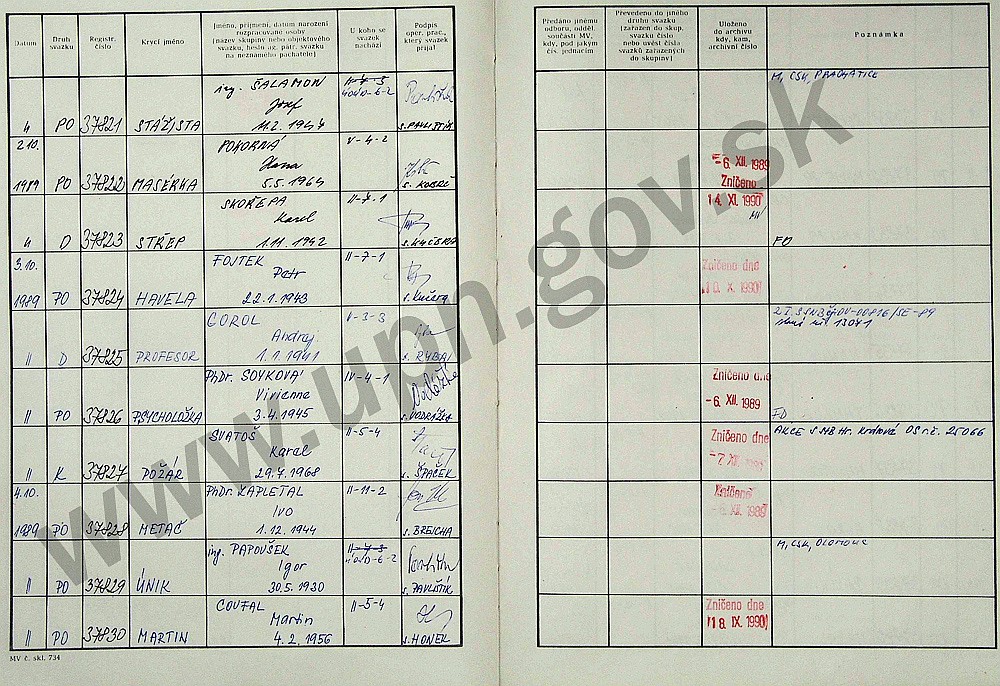 Datum
Druh svazku
Registr. číslo
Krycí jméno
Jméno, příjmení, datum narození
rozpracované osoby
(název skupiny nebo objektového
svazku, heslo ag. pátr. svazku
na neznámého pachatele)
U koho se svazek nachází
Podpis oper. prac., který svazek přijal
Předáno jinému
odboru, odděl.
součásti MV,
kdy, pod jakým
čís. jednacím
Převedeno do jiného
druhu svazku
(zařazen do skup.
svazku číslo
nebo uvést čísla
svazků zařazených
do skupiny)
Uloženo
do archivu
kdy, kam,
archivní číslo
Poznámka
ing. ŠALAMON
Josef
PO 37821 STÁŽISTA
40/10-6-2
s. PAVLIŠTÍK
M, CSK, PRACHATICE
2.10.
1989 PO 37822 MASÉRKA
POKORNÁ
Hana
5.5.1964
V-4-2
-6. XII. 1989
Zničeno
D 37823 STŘEP
SKOŘEPA
Karel
1.11.1942
II-7-1
14. XI. 1990
FD
3.10.
1989 PO 37824 HAVELA
FOJTEK
Petr
22.1.1943
II-7-1
s. Kučera
Zničeno dne
10. X. 1990
II D 37825 PROFESOR
GOROL
Andrej
1.1.1941
V-3-3
s. RYBAŘ
II PO 37826 PSYCHOLOŽKA
PhDr. SOYKOVÁ
Vivienne
3.4.1945
IV-4-1
s. VODRÁŽKA
Zničeno dne
-6. XII. 1989
FD
II K 37827 POŽÁR
SVATOŠ
Karel
29.7.1968
II-5-4
s. ŠPAČEK
Zničeno dne
-7. XII. 1989
AKCE SNB Hr. Králové OS r.č. 25066
4.10.
1989 PO 37828 METAČ
PhDr. ZAPLETAL
Ivo
1.12.1944
II-11-2
s. BREJCHA
Zničeno
-6. XII. 1989
II PO 37829 ÚNIK
ing. PAPOUŠEK
Igor
30.5.1930
II-7-3
40/10-6-2
s. PAVLIŠTÍK
M, CSK, OLOMOUC
II PO 37830 MARTIN
COUFAL
Martin
4.2.1956
II-5-4
s. HONEK
Zničeno dne
18. IX. 1990
MV č. skl. 734
www.upn.gov.sk